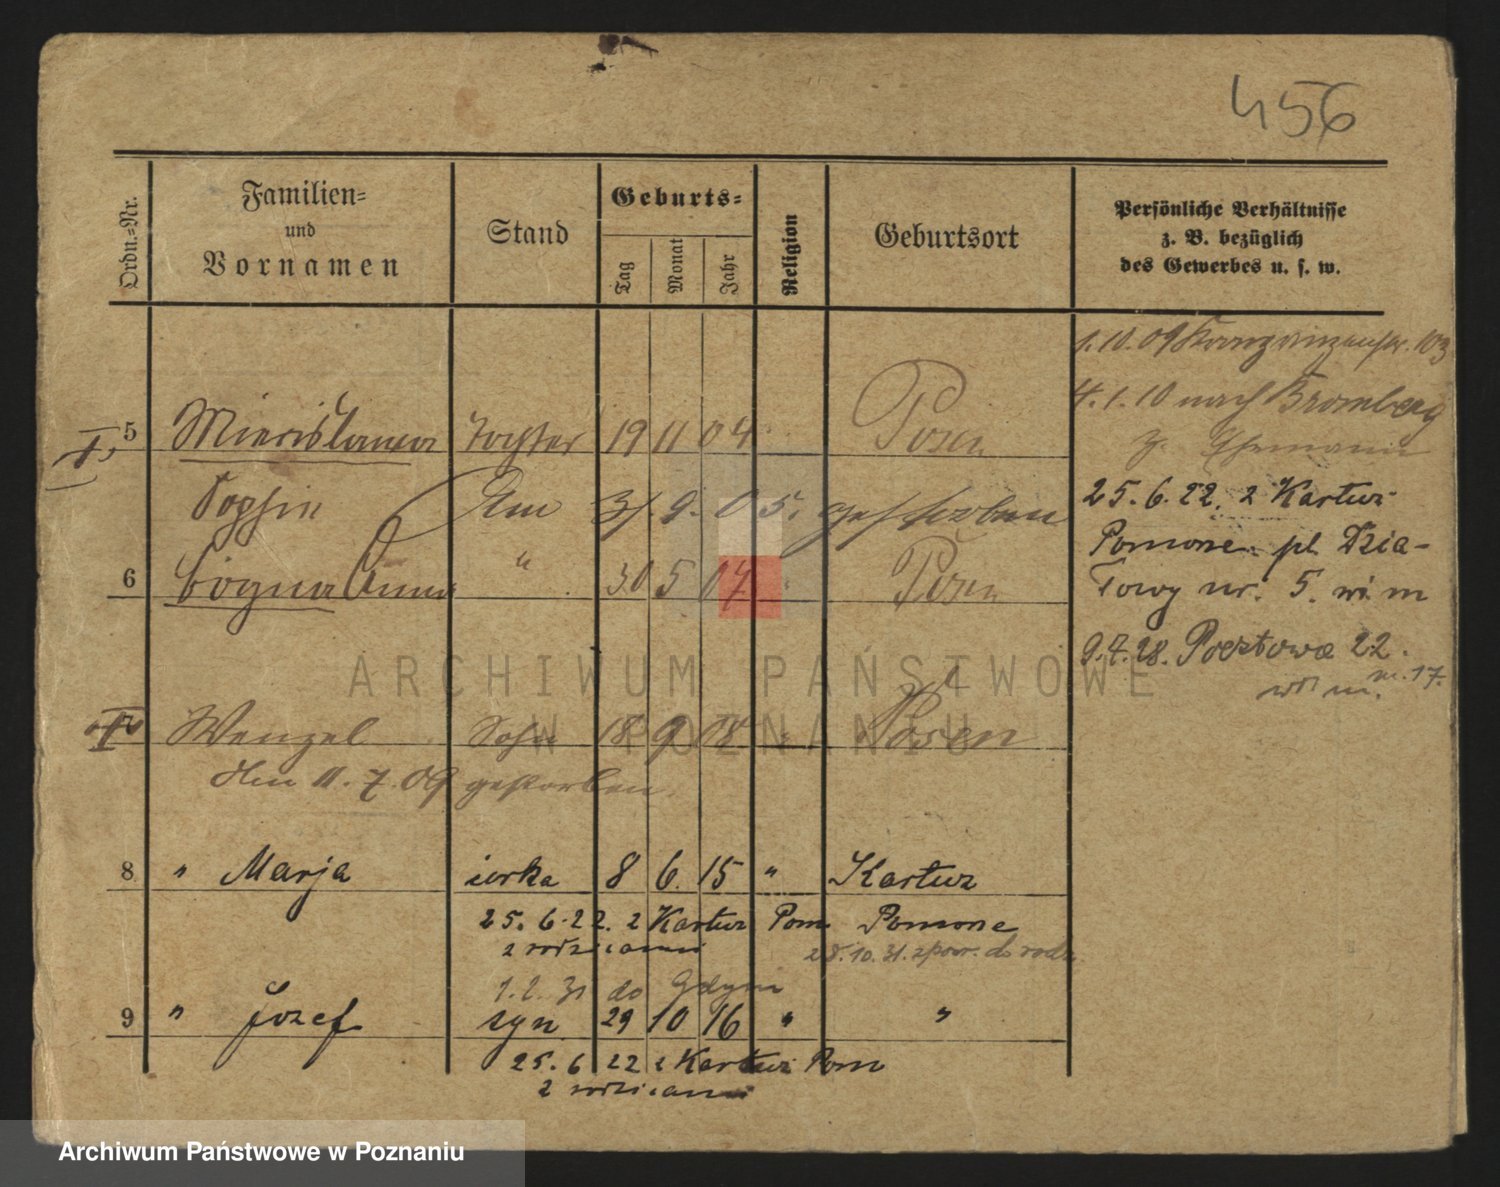 456
Ordn.=Nr.
Familien=
und
Vornamen
Stand
Geburts=
Tag
Monat
Jahr
Religion
Geburtsort
Persönliche Verhältnisse
z. B. bezüglich
des Gewerbes u. s. w.
1.10.09 Kronprinzenstr. 103
4.1.10 nach Bromberg
z. Ehemann
5 Miecislawa Tochter 19 11 04 Posen
Sophie Am 3/9.05. gestorben
25.6.22. z Kartuz
Pomorze pl. Dzia-
6 Bogna Anna " 30 5 07 " Posen
łowy nr. 5. wi m
9.7.28. Pocztowa 22.
m. 17.
7 Wenzel Sohn 18 9 08 " Posen
Am 11.7.09 gestorben
8 " Marja córka 8 6. 15 " Kartuz
25.6.22. z Kartuz Pom Pomorze
z rodzicami
28.10.31. z pow. do rodz.
1.2.31 do Gdyni
9 " Józef syn 29 10 16 " "
25.6 22 z Kartuz Pom
z rodzicami
ARCHIWUM PAŃSTWOWE
W POZNANIU
Archiwum Państwowe w Poznaniu